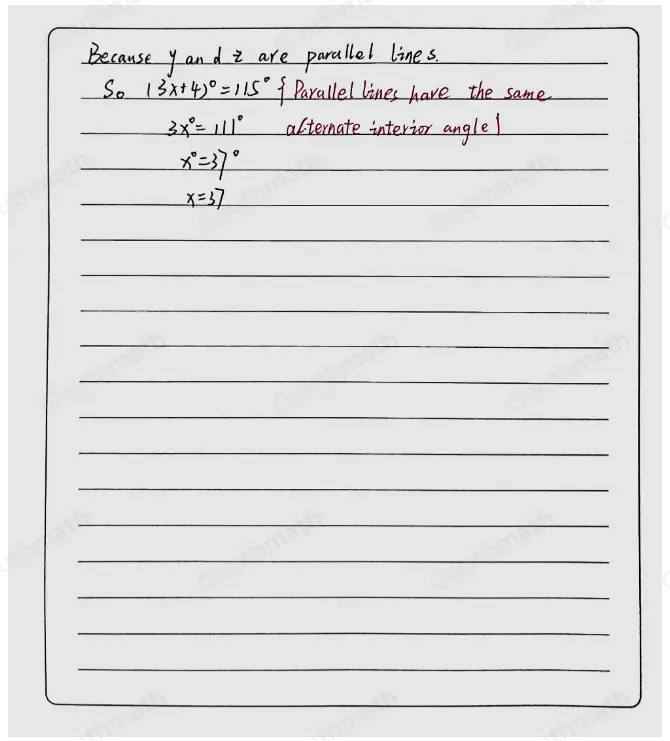 Because y and z are parallel lines.
So (3x+4)°=115° {Parallel lines have the same
3x°=111° alternate interior angle}
x°=37°
x=37
Gauthmath